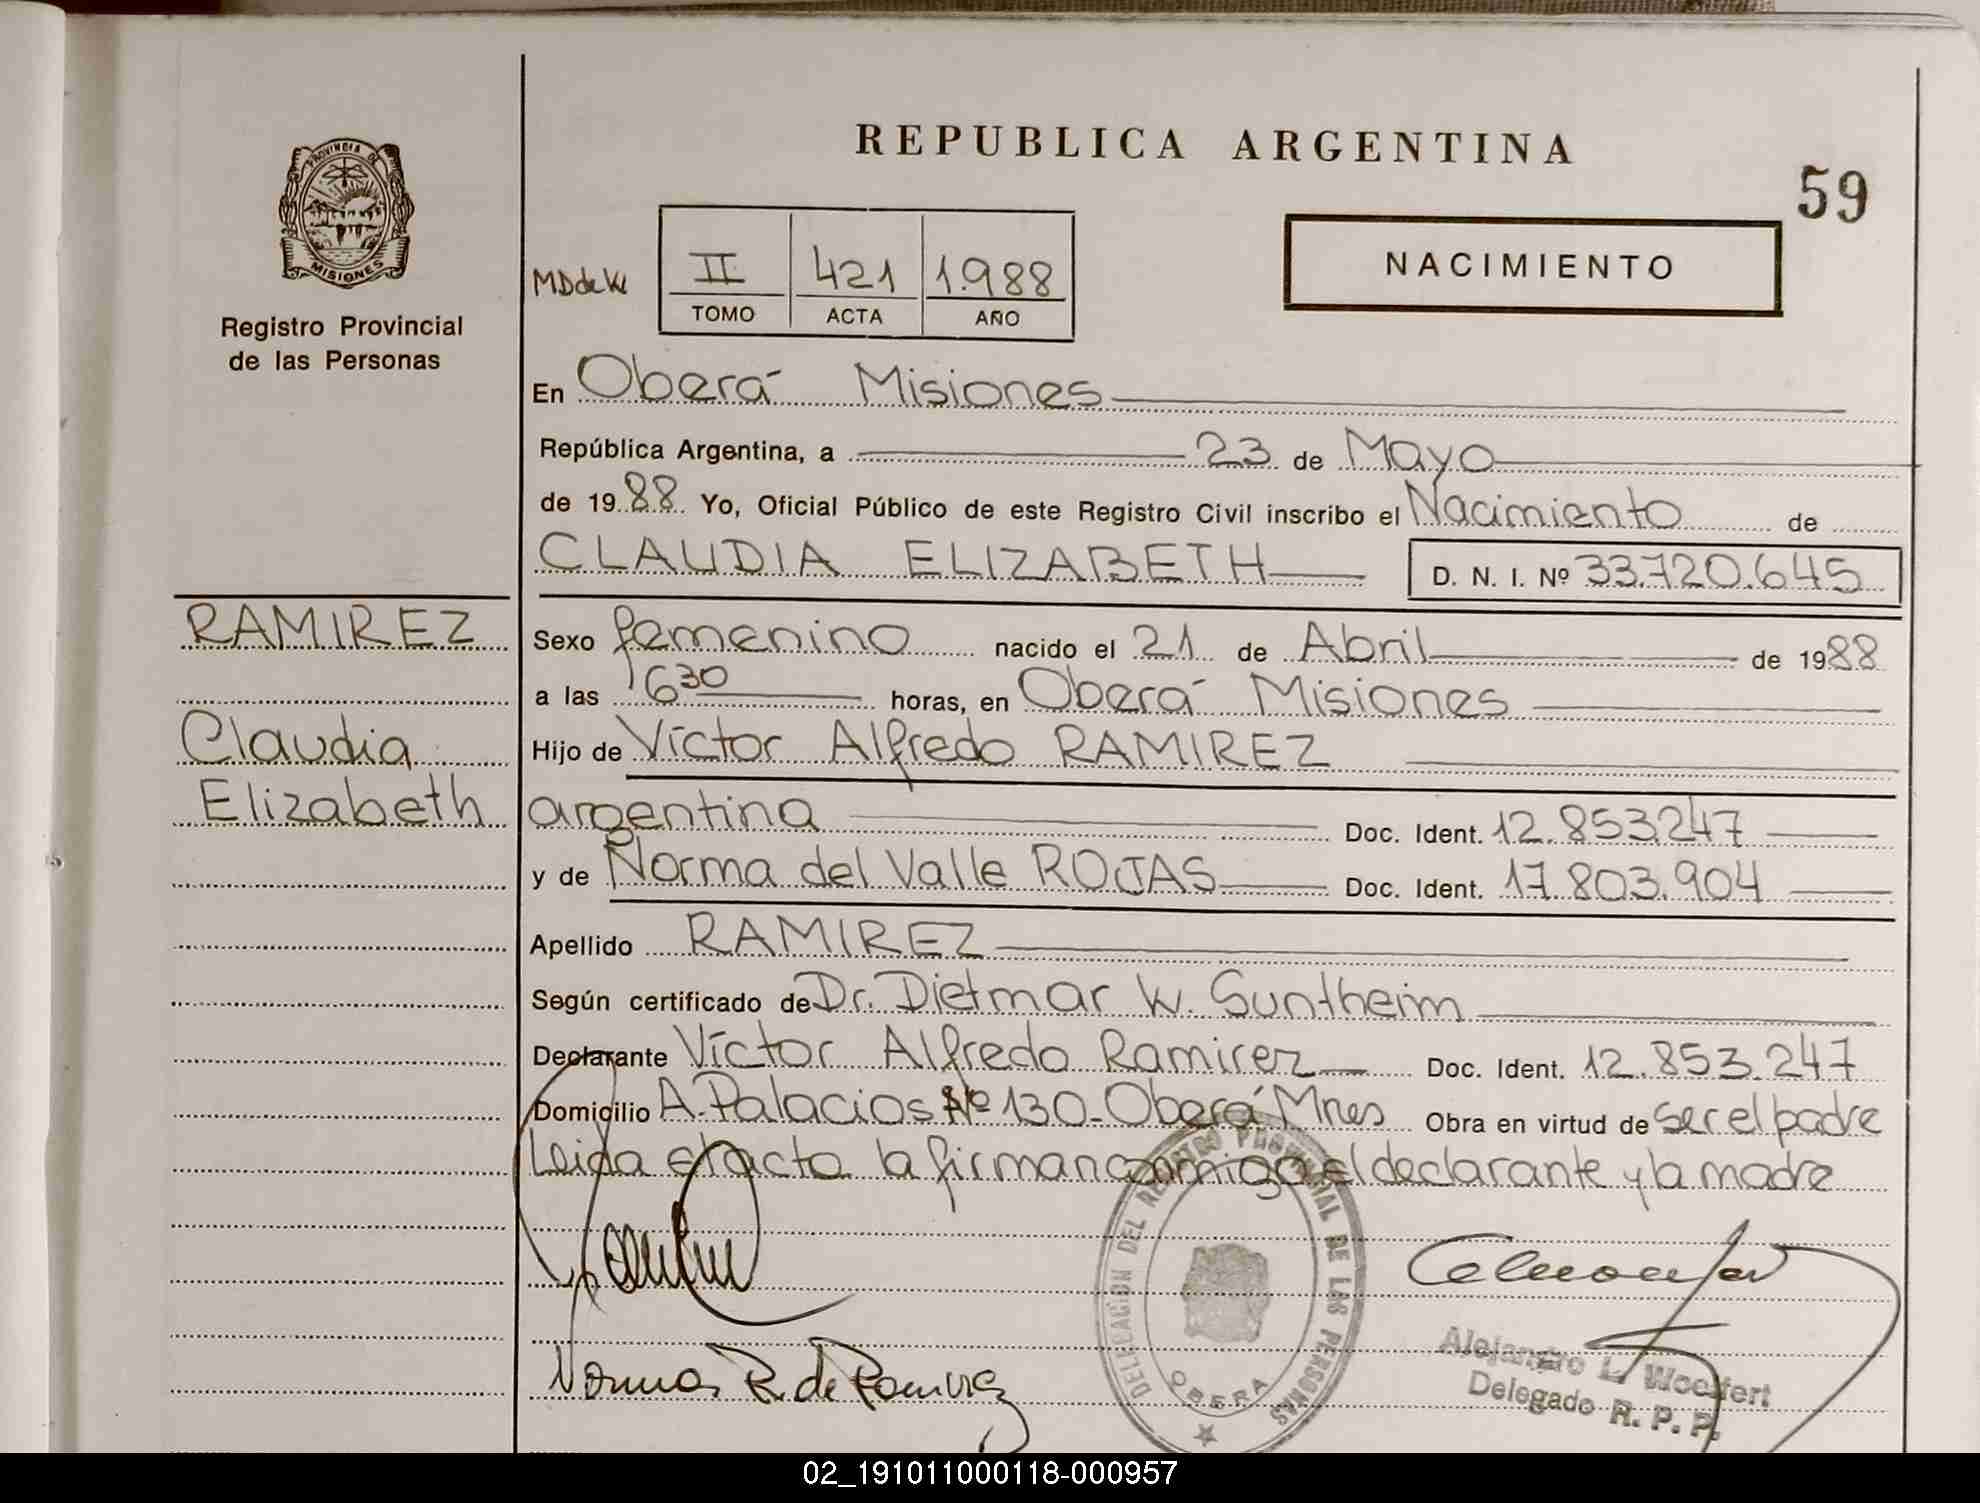 REPUBLICA ARGENTINA
59
PROVINCIA DE
MISIONES
Registro Provincial
de las Personas
MDdeW
II 421 1.988
TOMO ACTA AÑO
NACIMIENTO
En Oberá Misiones
República Argentina, a 23 de Mayo
de 1988 Yo, Oficial Público de este Registro Civil inscribo el Nacimiento de
CLAUDIA ELIZABETH D. N. I. Nº 33.720.645
RAMIREZ
Claudia
Elizabeth
Sexo femenino nacido el 21 de Abril de 1988
a las 1630 horas, en Oberá Misiones
Hijo de Víctor Alfredo RAMIREZ
argentina Doc. Ident. 12.853.247
y de Norma del Valle ROJAS Doc. Ident. 17.803.904
Apellido RAMIREZ
Según certificado de Dr. Dietmar W. Suntheim
Declarante Víctor Alfredo Ramirez Doc. Ident. 12.853.247
Domicilio A. Palacios Nº 130-Oberá Mnes Obra en virtud de ser el padre
Leida el acta la firman conmigo el declarante y la madre
DELEGACION DEL REGISTRO PROVINCIAL DE LAS PERSONAS
OBERA
Norma R. de Ramirez
Alejandro L. Woelfert
Delegado R. P. P.
02_191011000118-000957